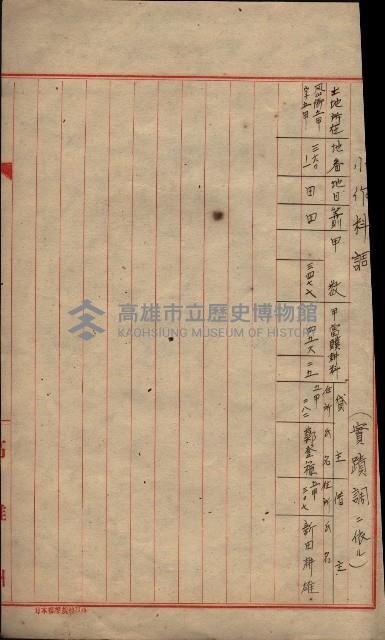 小作料請
(實蹟調ニ依ル)
土地所在
地番
地目
等則
甲數
甲當贌耕料
貸主
住所
氏名
借主
住所
氏名
鳳山街五甲
字五甲
三六〇
一
田
田
三四七七
四五六二五
五甲
二八二
鄭登
五甲
三〇七
新田耕雄
高雄州
高雄市立歷史博物館
KAOHSIUNG MUSEUM OF HISTORY